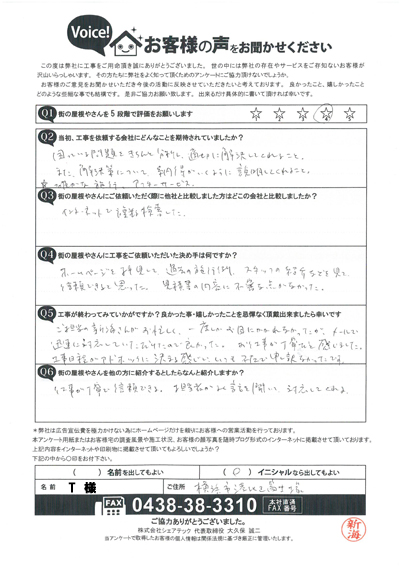 Voice!
お客様の声をお聞かせください
この度は弊社に工事をご用命頂き誠にありがとうございました。世の中には弊社の存在やサービスをご存知ないお客様が
沢山いらっしゃいます。その方たちに弊社をよく知って頂くためのアンケートにご協力頂けないでしょうか。
お客様のご意見をお聞かせいただき今後の活動に反映させていただきたいと考えております。良かったこと、嬉しかったこと
どのような些細な事でも結構です。是非ご協力お願い致します。出来るだけ具体的に書いて頂ければ幸いです。
Q1 街の屋根やさんを5段階で評価をお願いします ☆ ☆ ☆ ☆ ☆
Q2 当初、工事を依頼する会社にどんなことを期待されていましたか?
困っている問題をきちんと分析し、適切に解決してくれること。
また、解決策について、納得がいくように説明してくれること。
確かな施行、アフターサービス。
Q3 街の屋根やさんにご依頼いただく際に他社と比較しました方はどこの会社と比較しましたか?
インターネットで複数検索した。
Q4 街の屋根やさんに工事をご依頼いただいた決め手は何ですか?
ホームページを拝見して、過去の施行例、スタッフの紹介などを見て、
信頼できると思った。見積等の内容に不審な点がなかった。
Q5 工事が終わってみていかがですか?良かった事・嬉しかったことを忌憚なく頂戴出来ましたら幸いです
ご担当の新海さんがお忙しく、一度しかお目にかかれなかったが、メールで
迅速に対応していただけたので良かった。
Q6 街の屋根やさんを他の方に紹介するとしたらなんと紹介しますか?
工事が丁寧で信頼できる。お客さんの話を聞いて、対応してくれる。
*弊社は広告宣伝費を極力かけない為にホームページだけを頼りにお客様への営業活動を行っております。
本アンケート用紙またはお客様宅の調査風景や施工状況、お客様の顔写真を随時ブログ形式のインターネットに掲載させて頂いております。
上記内容をインターネットや印刷物に掲載させて頂いてもよろしいでしょうか?
下記の中から○印をお付け下さい。
( )名前を出してもよい ( ○ )イニシャルなら出してもよい
名前 T 様 ご住所
FAX 0438-38-3310 本社直通 FAX番号
ご協力ありがとうございました。
株式会社シェアテック 代表取締役 大久保 誠二
当アンケートで取得したお客様の個人情報は関係法規に基づき厳正に管理いたします。
新海